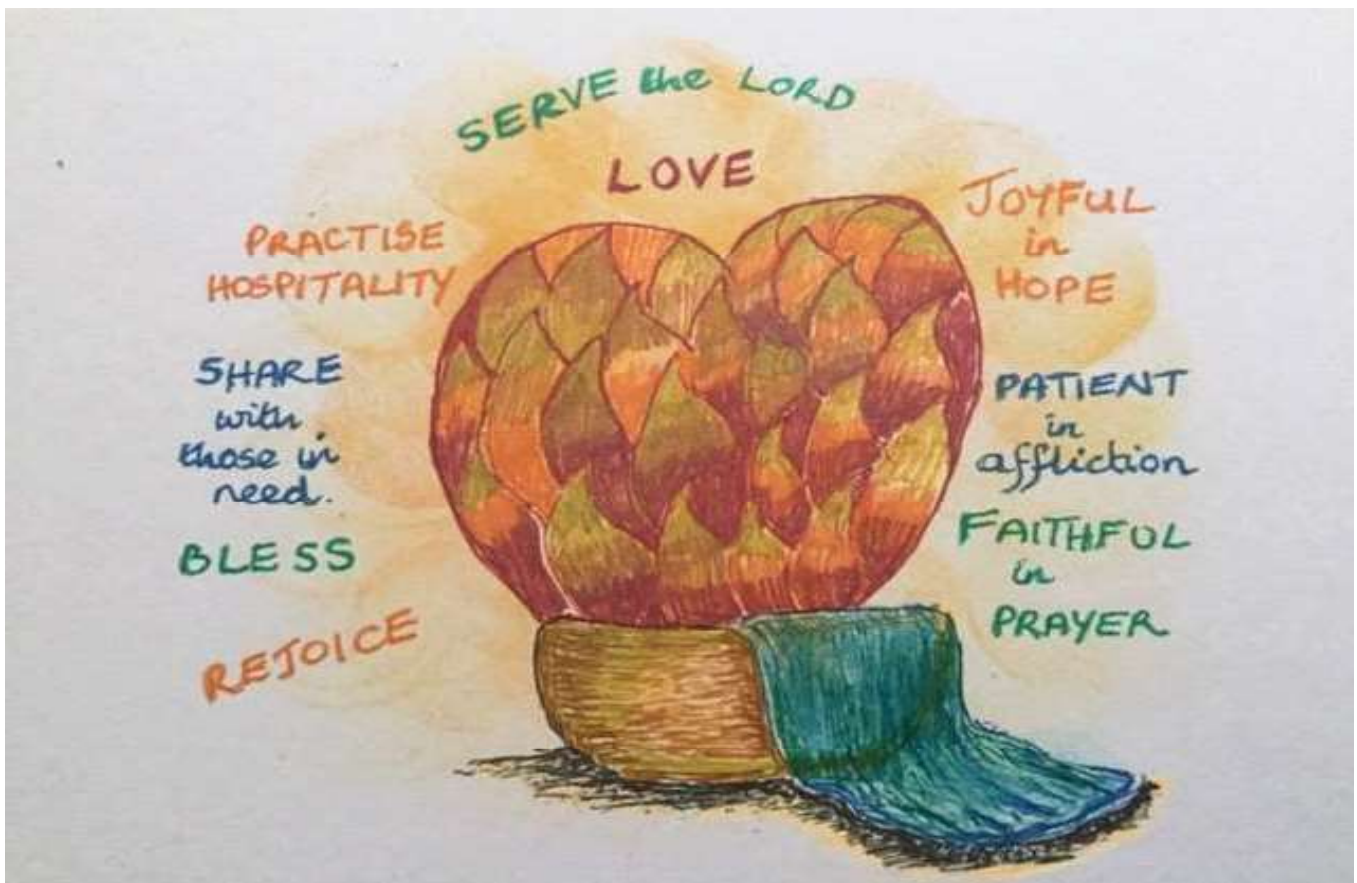 SERVE the LORD
LOVE
PRACTISE
HOSPITALITY
SHARE
with
those in
need.
BLESS
REJOICE
JOYFUL
in
HOPE
PATIENT
in
affliction
FAITHFUL
in
PRAYER